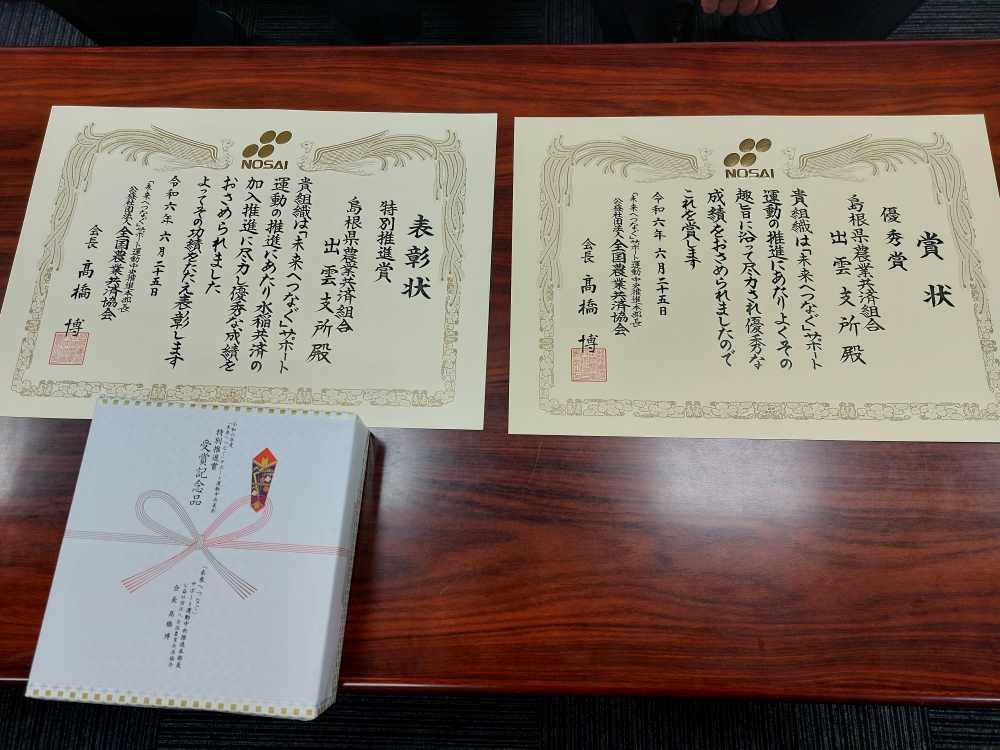 NOSAI
表彰状
特別推進賞
島根県農業共済組合
出雲支所殿
貴組織は「未来へつなぐ」サポート
運動の推進にあたり水稲共済の
加入推進に尽力し優秀な成績を
おさめられました
よってその功績をたたえ表彰します
令和六年 六月二十五日
「未来へつなぐ」サポート運動中央推進本部長
公益社団法人全国農業共済協会
会長 髙橋 博
NOSAI
賞状
優秀賞
島根県農業共済組合
出雲支所殿
貴組織は「未来へつなぐ」サポート
運動の推進にあたりよくその
趣旨に沿って尽力され優秀な
成績をおさめられましたので
これを賞します
令和六年 六月二十五日
「未来へつなぐ」サポート運動中央推進本部長
公益社団法人全国農業共済協会
会長 髙橋 博
特別推進賞
受賞記念品
「未来へつなぐ」
サポート運動中央推進本部長
公益社団法人全国農業共済協会
会長 髙橋 博